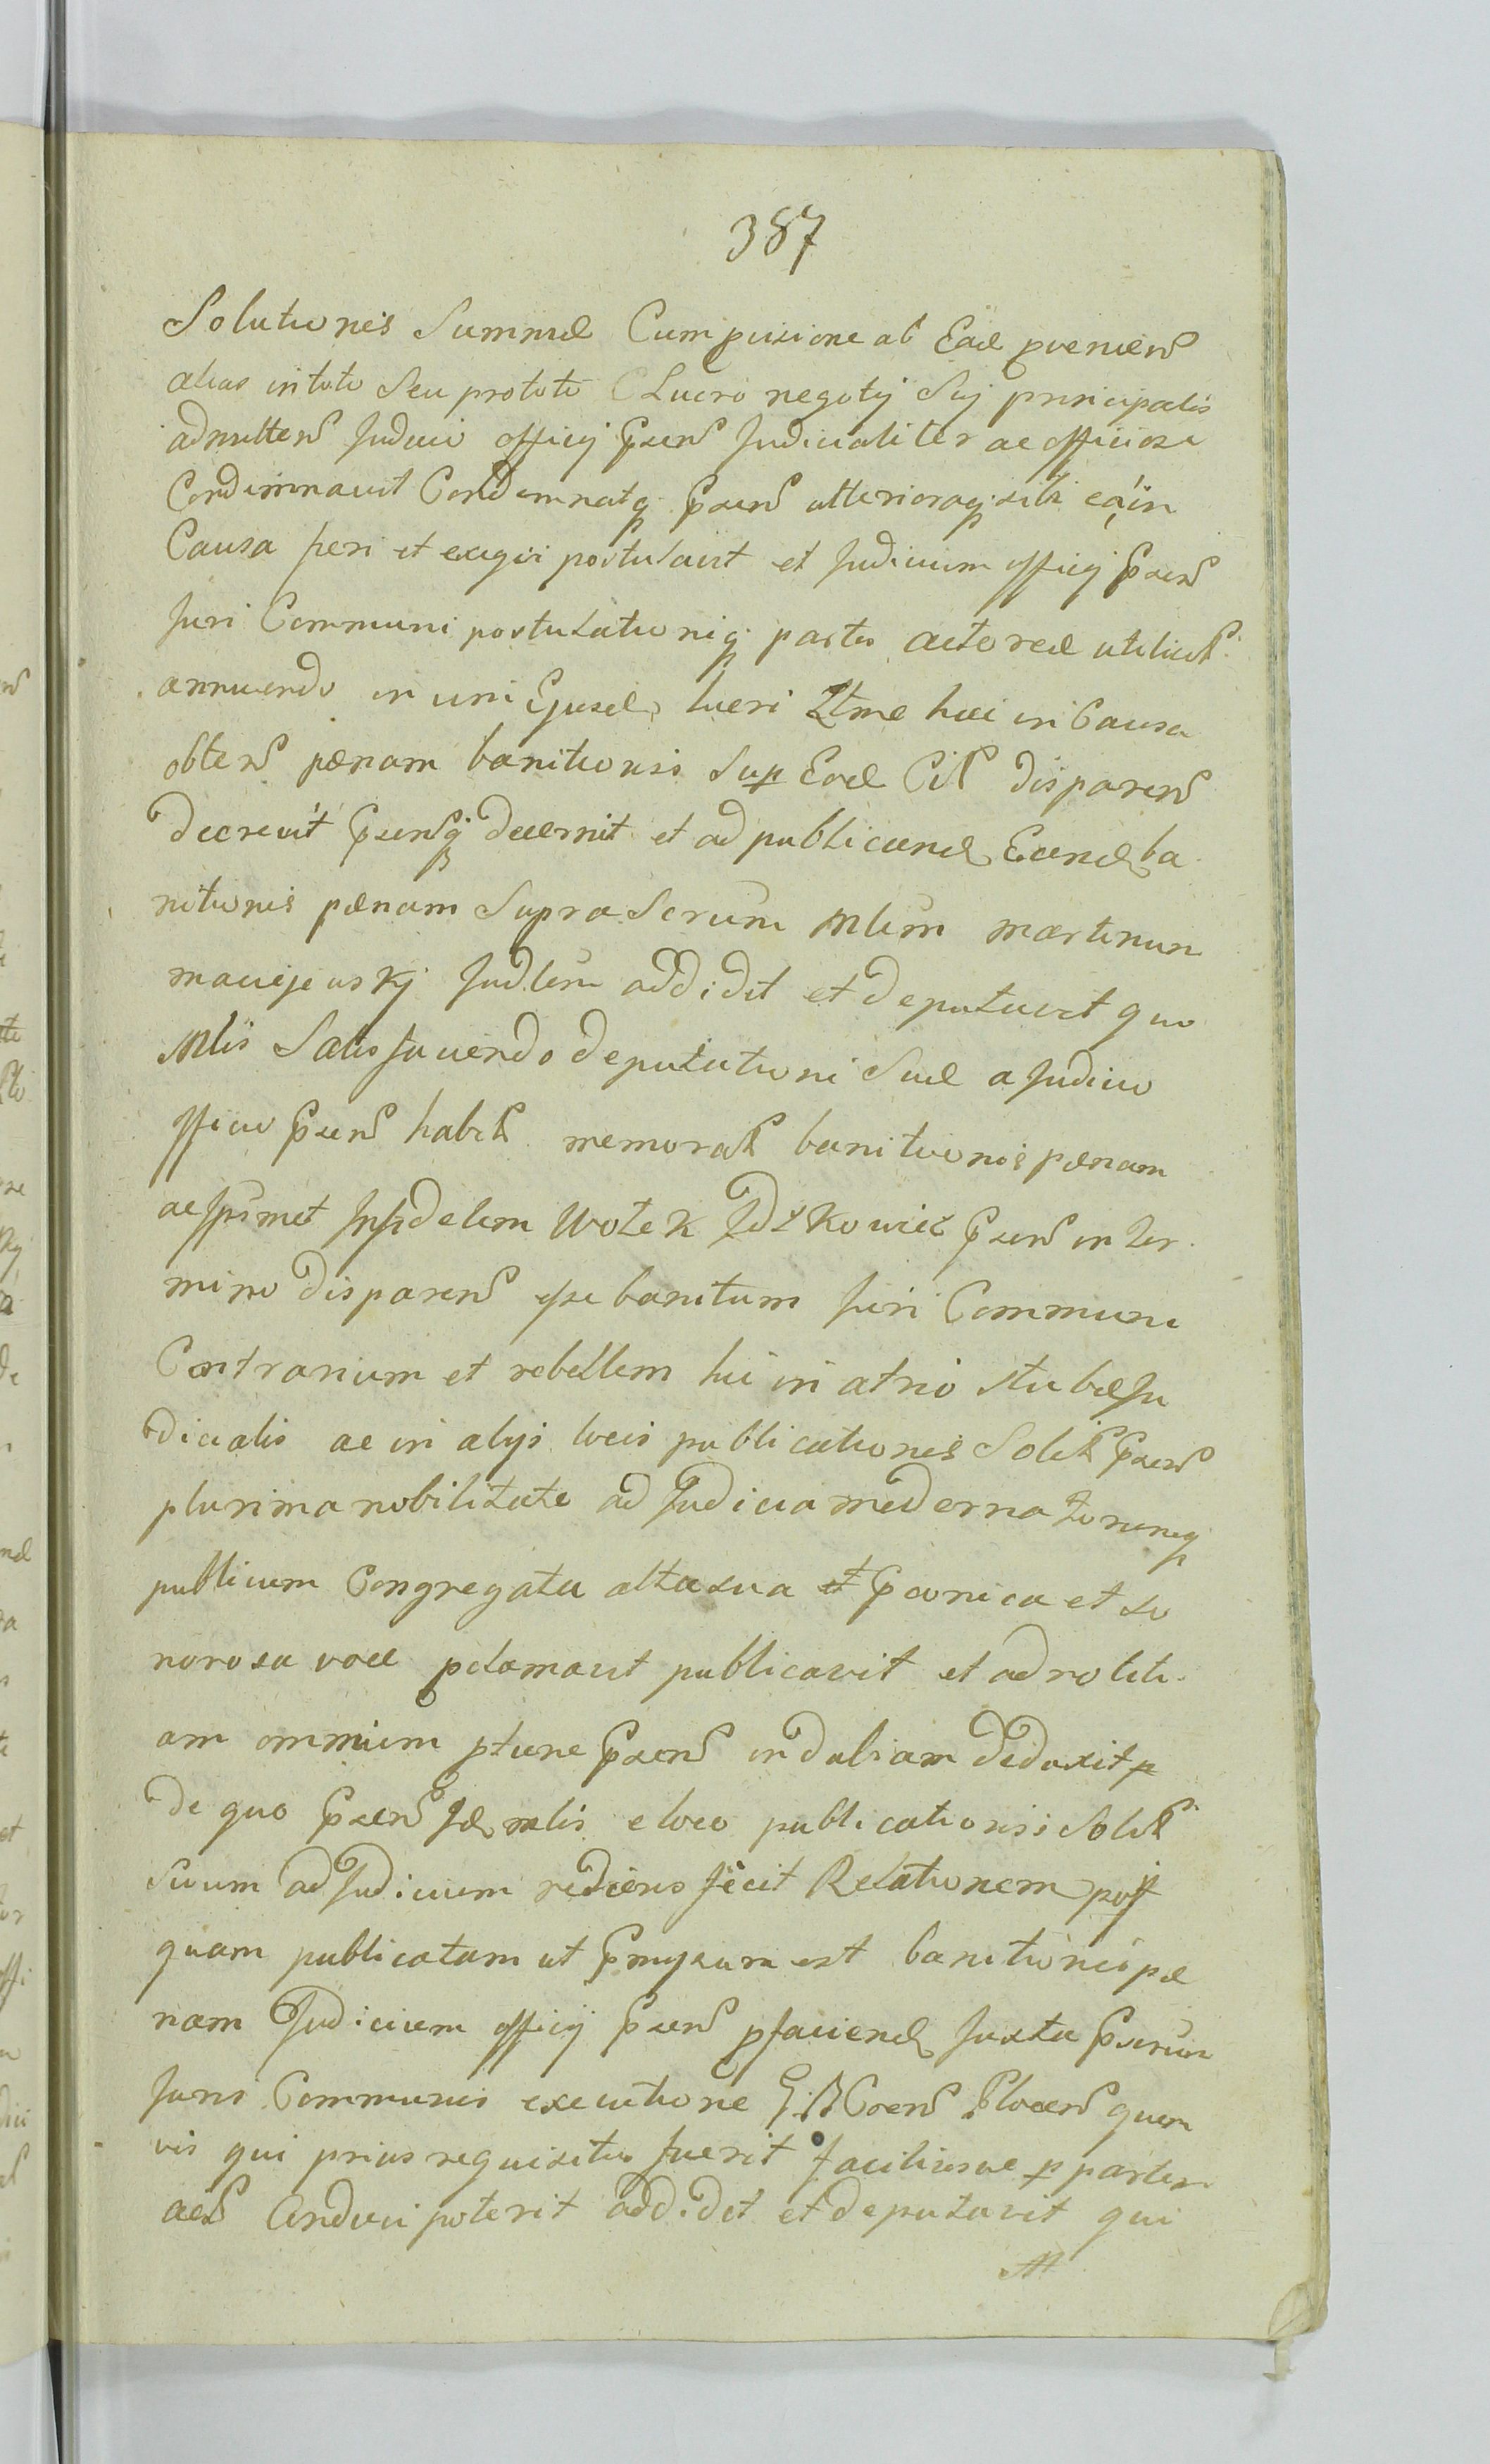 387
Solutionis Summæ Cum pœnione ab Eade proveniens
alias in toto Seu pro toto Lucro negotij Sui principalis
admittens Judicii officij Præsens Judicialiter ac officiose
Condemnavit Condemnatq. Præsens ulterioraq. sibi ea in
Causa fieri et exigi postulavit et Judicium officij Præsens
Juri Communi postulationiq. partis actoreæ utilit
annuendo in vim Ejusde lucri Ltme hac in Causa
obtens pænam banitionis Sup Eode Cit disparens
decrevit Præsensq decernit et ad publicand Eande ba
nitionis pænam Supra Scrum Mlem Martinum
Maciejewskj Judlem addidit et deputavit quo
Mlis Satisfaciendo deputationi Suæ a Judicio
officio Præsens habit memorat banitionis pænam
ac Ipsummet Infidelem Wołek Jdzkowicz Præsens in ter
mino disparens esse banitum Juri Communi
Contrarium et rebellem hic in atrio stubæ Ju
dicialis ac in alijs locis publicationis Solit Præsens
plurima nobilitate ad Judicia moderna forumq
publicum Congregata alta sua et Præconica et so
norosa voce pclamavit publicavit et ad notiti
am omnium ptunc Præsens indubiam deduxit
De quo Præsens Id mlis e loco publicationis Solit
Suum ad Judicium rediens fecit Relationem post
quam publicatam ut Præmissum est banitionis pæ
nam Judicium officij Præsens p faciend Juxta Præscrum
Juris Communis executione G. B. Coens Ploccens quem
vis qui prius requisitus fuerit faciliusve p partem
act Conduci poterit addidit et deputavit qui